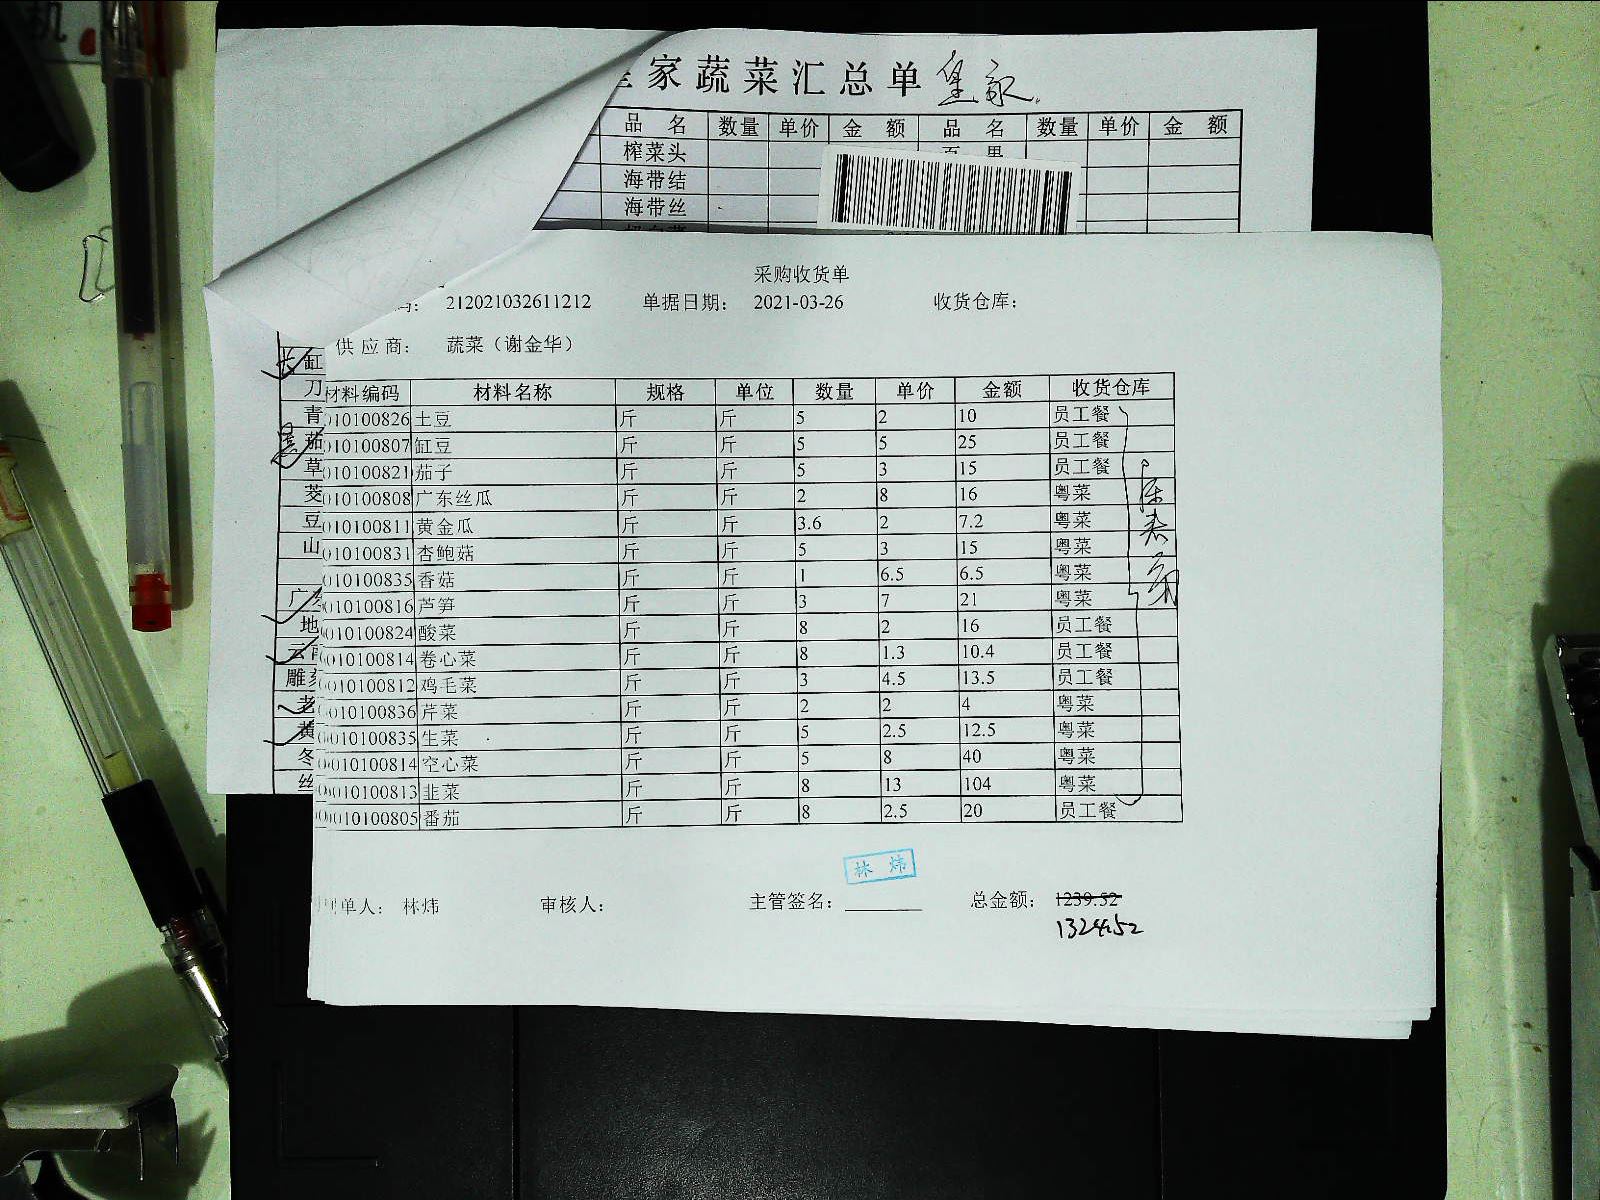 家蔬菜汇总单 皇家
品 名 数量 单价 金 额 品 名 数量 单价 金 额
榨菜头
海带结
海带丝
采购收货单
212021032611212 单据日期： 2021-03-26 收货仓库：
供 应 商： 蔬菜（谢金华）
材料编码 材料名称 规格 单位 数量 单价 金额 收货仓库
010100826 土豆 斤 斤 5 2 10 员工餐
010100807 缸豆 斤 斤 5 5 25 员工餐
010100821 茄子 斤 斤 5 3 15 员工餐
010100808 广东丝瓜 斤 斤 2 8 16 粤菜
010100811 黄金瓜 斤 斤 3.6 2 7.2 粤菜
010100831 杏鲍菇 斤 斤 5 3 15 粤菜
010100835 香菇 斤 斤 1 6.5 6.5 粤菜
010100816 芦笋 斤 斤 3 7 21 粤菜
010100824 酸菜 斤 斤 8 2 16 员工餐
010100814 卷心菜 斤 斤 8 1.3 10.4 员工餐
010100812 鸡毛菜 斤 斤 3 4.5 13.5 员工餐
010100836 芹菜 斤 斤 2 2 4 粤菜
010100835 生菜 斤 斤 5 2.5 12.5 粤菜
010100814 空心菜 斤 斤 5 8 40 粤菜
010100813 韭菜 斤 斤 8 13 104 粤菜
010100805 番茄 斤 斤 8 2.5 20 员工餐
林 炜
制单人： 林炜 审核人： 主管签名： 总金额： 1239.52
1324.52
缸
刀
青
茄
草
菱
豆
山
广
地
云南
雕刻
老
黄
冬
丝